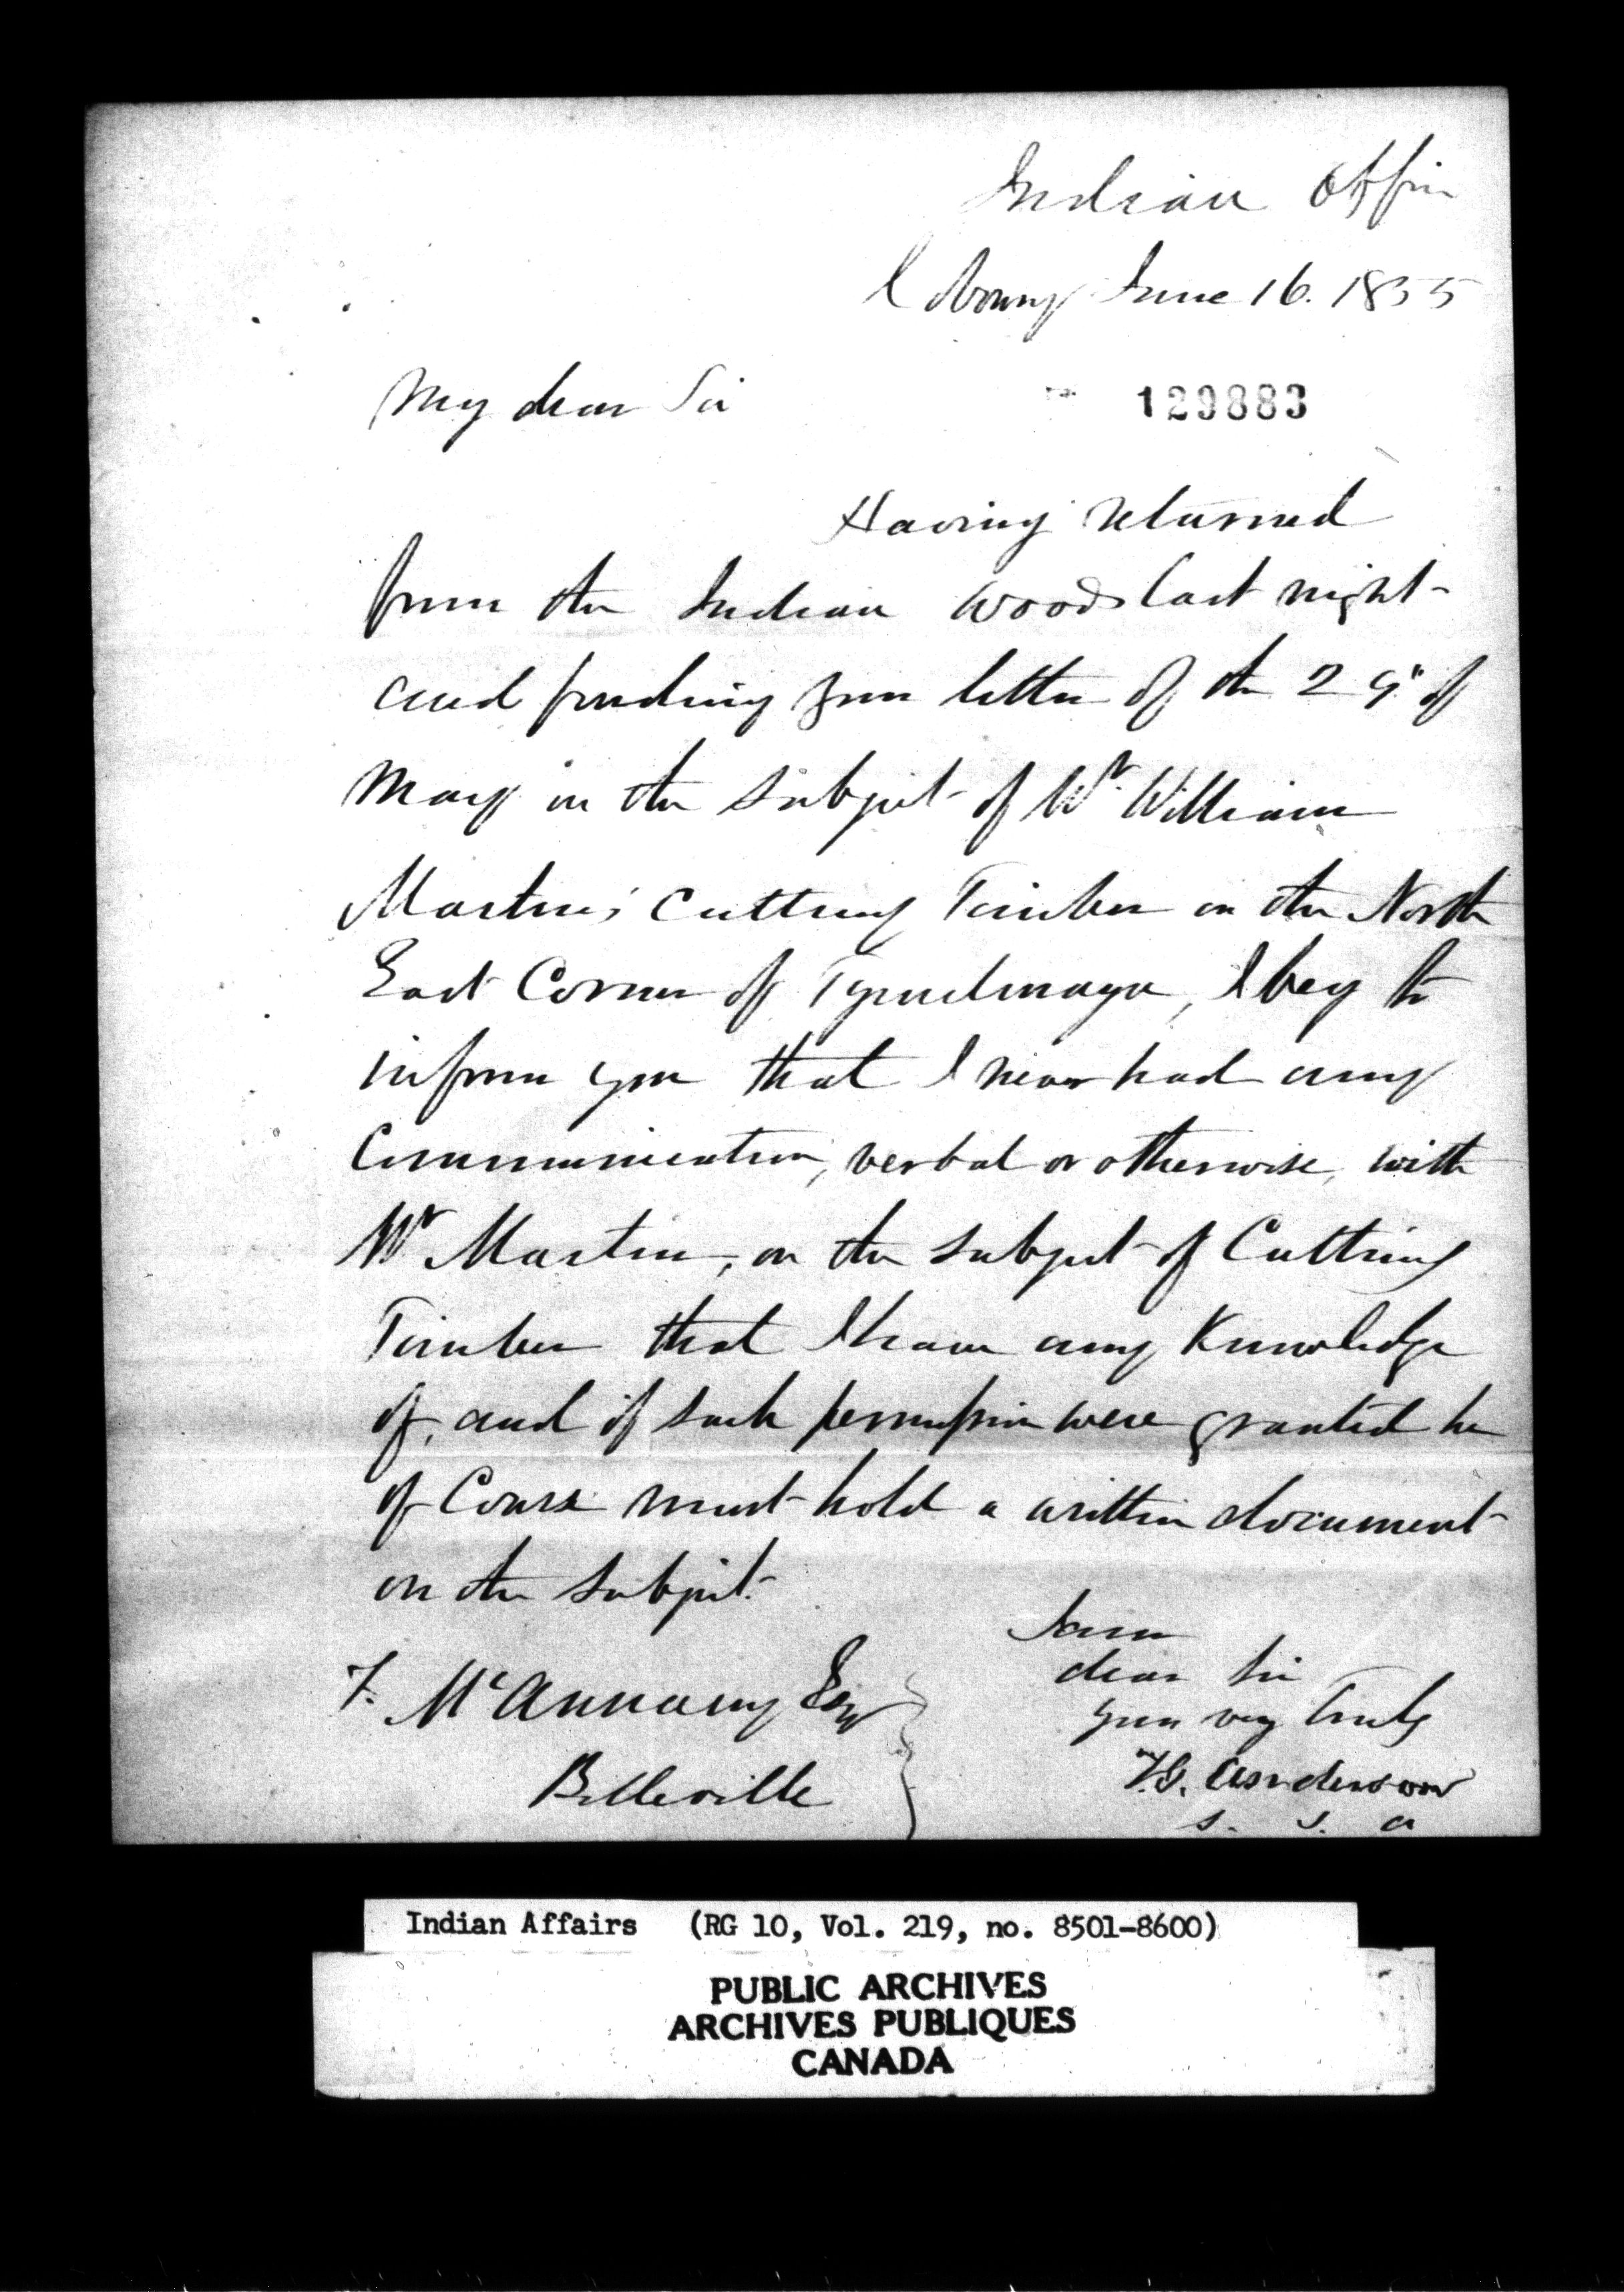 Indian Office
Cobourg June 16. 1855
My dear Sir
129883
Having returned
from the Indian woods last night
and finding your letter of the 29" of
May on the subject of Mr. William
Martin's cutting Timber on the North
East Corner of Tyendinaga, I beg to
inform you that I never had any
Communication, verbal or otherwise, with
Mr Martin, on the subject of Cutting
Timber that I have any Knowledge
of, and if such permission were granted he
of Course must hold a written document
on the subject.
I am
dear Sir
your very Truly
T.G. Anderson
S. I. A
T. McAnnany Esq
Belleville
Indian Affairs (RG 10, Vol. 219, no. 8501-8600)
PUBLIC ARCHIVES
ARCHIVES PUBLIQUES
CANADA